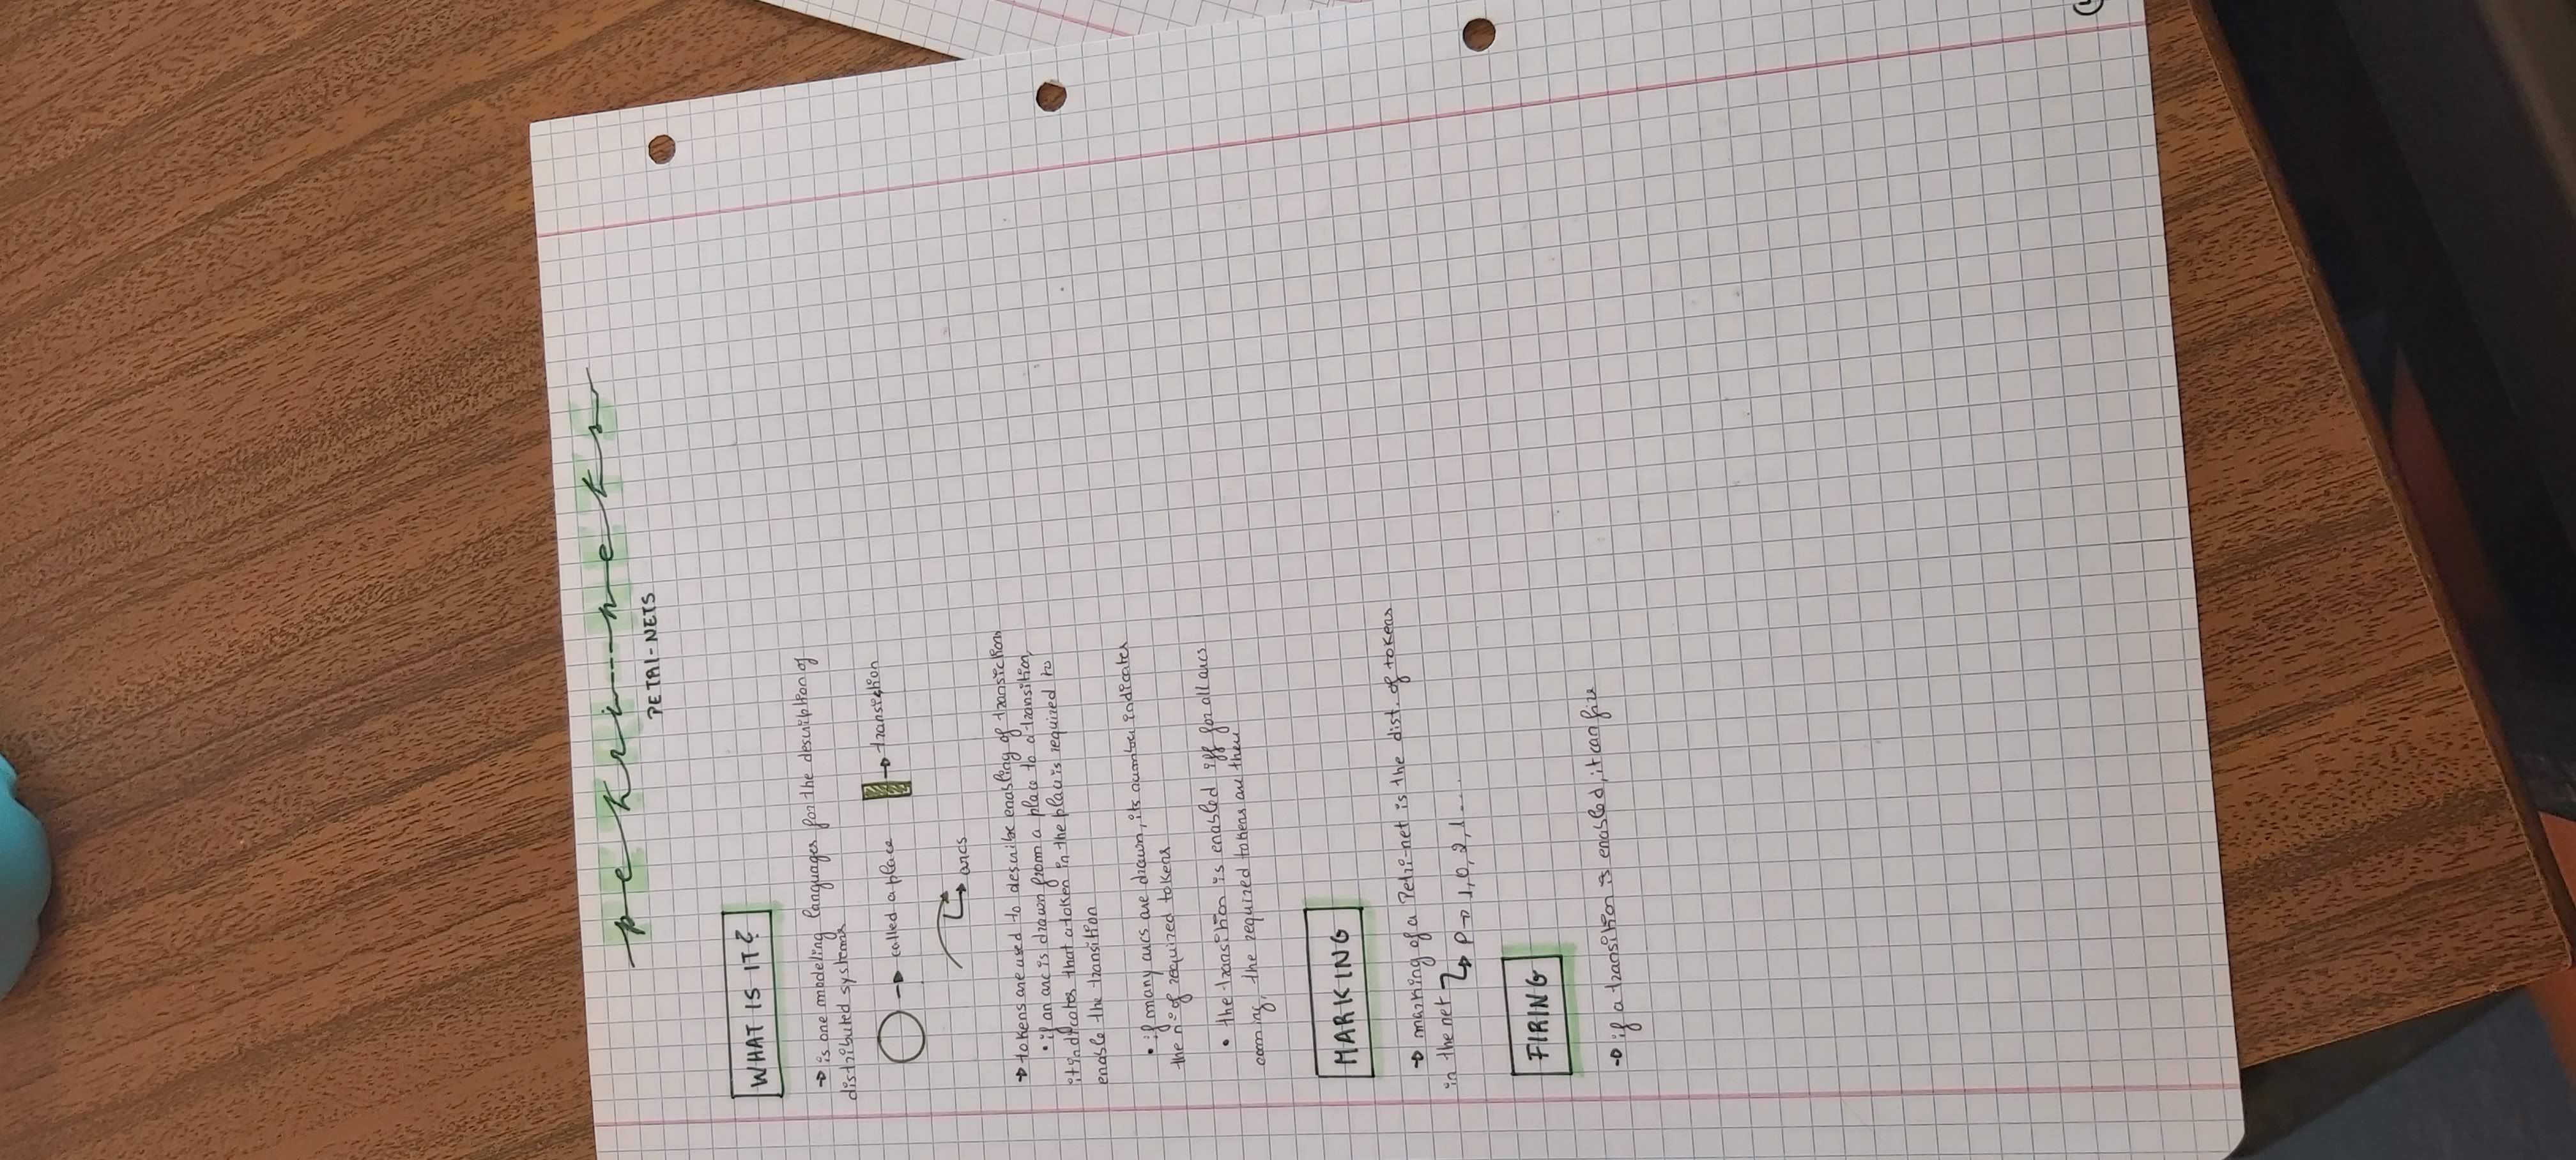 petri---nets
PETRI-NETS
WHAT IS IT?
→ is one modeling languages for the desuiption of
distributed systems
→ called a place → transiction
→ arcs
→ tokens are used to describe enabling of transictions
• if an arc is drawn from a place to a transition,
it indicates that a token in the place is required to
enable the transition
• if many arcs are drawn, its number indicates
the n° of required tokens
• the transition is enabled iff for all arcs
coming, the required tokens are there
MARKING
→ marking of a Petri-net is the dist. of tokens
in the net → P → 1,0,2,1...
FIRING
→ if a transition is enabled, it can fire